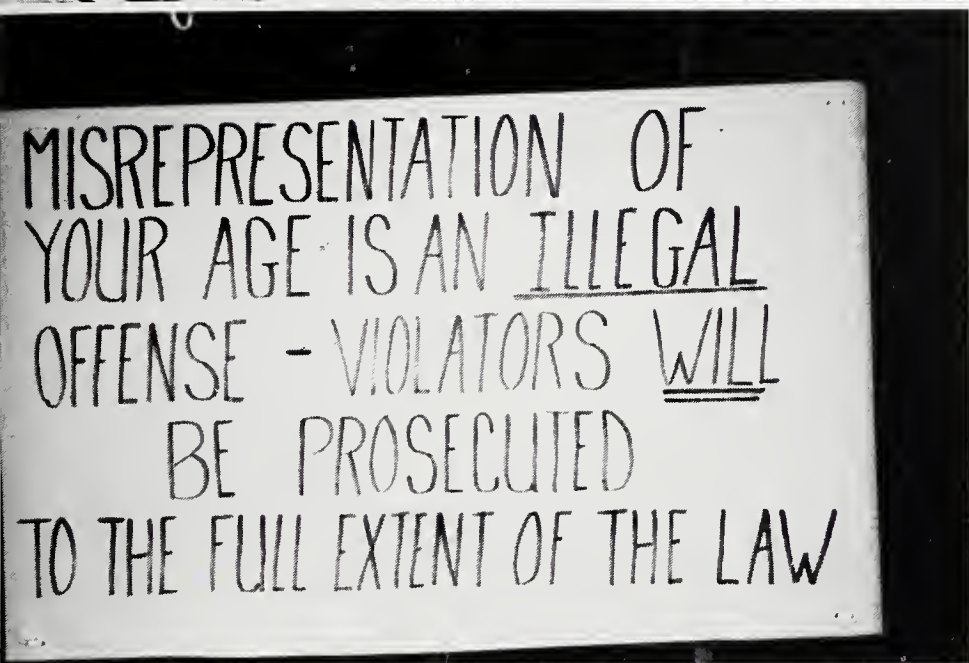 MISREPRESENTATION OF
YOUR AGE IS AN ILLEGAL
OFFENSE - VIOLATORS WILL
BE PROSECUTED
TO THE FULL EXTENT OF THE LAW